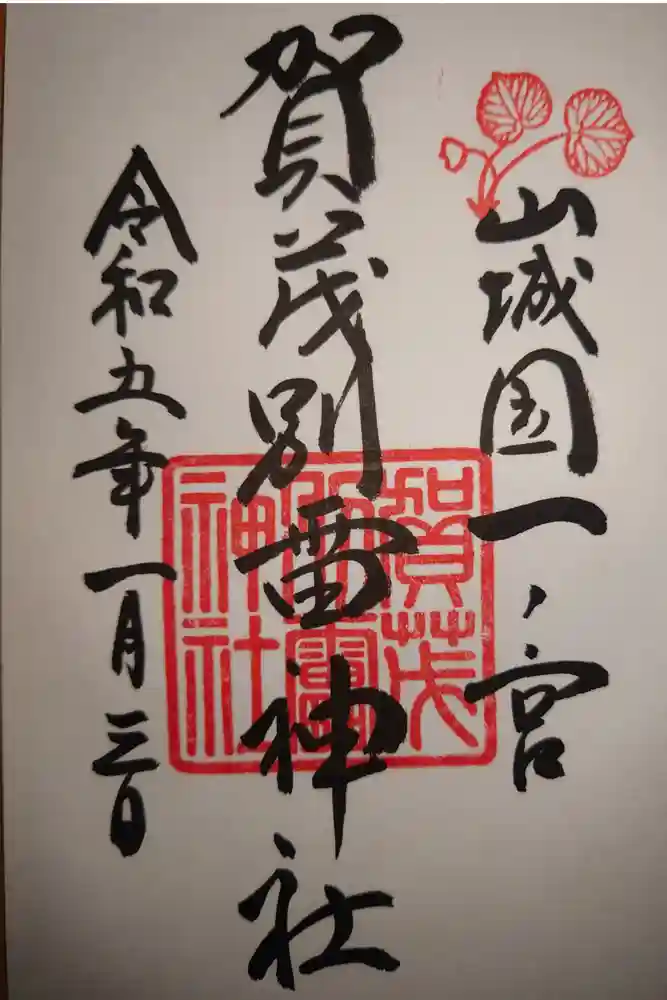 山城国一ノ宮
賀茂別雷神社
令和五年一月三日
賀茂
別雷
神社